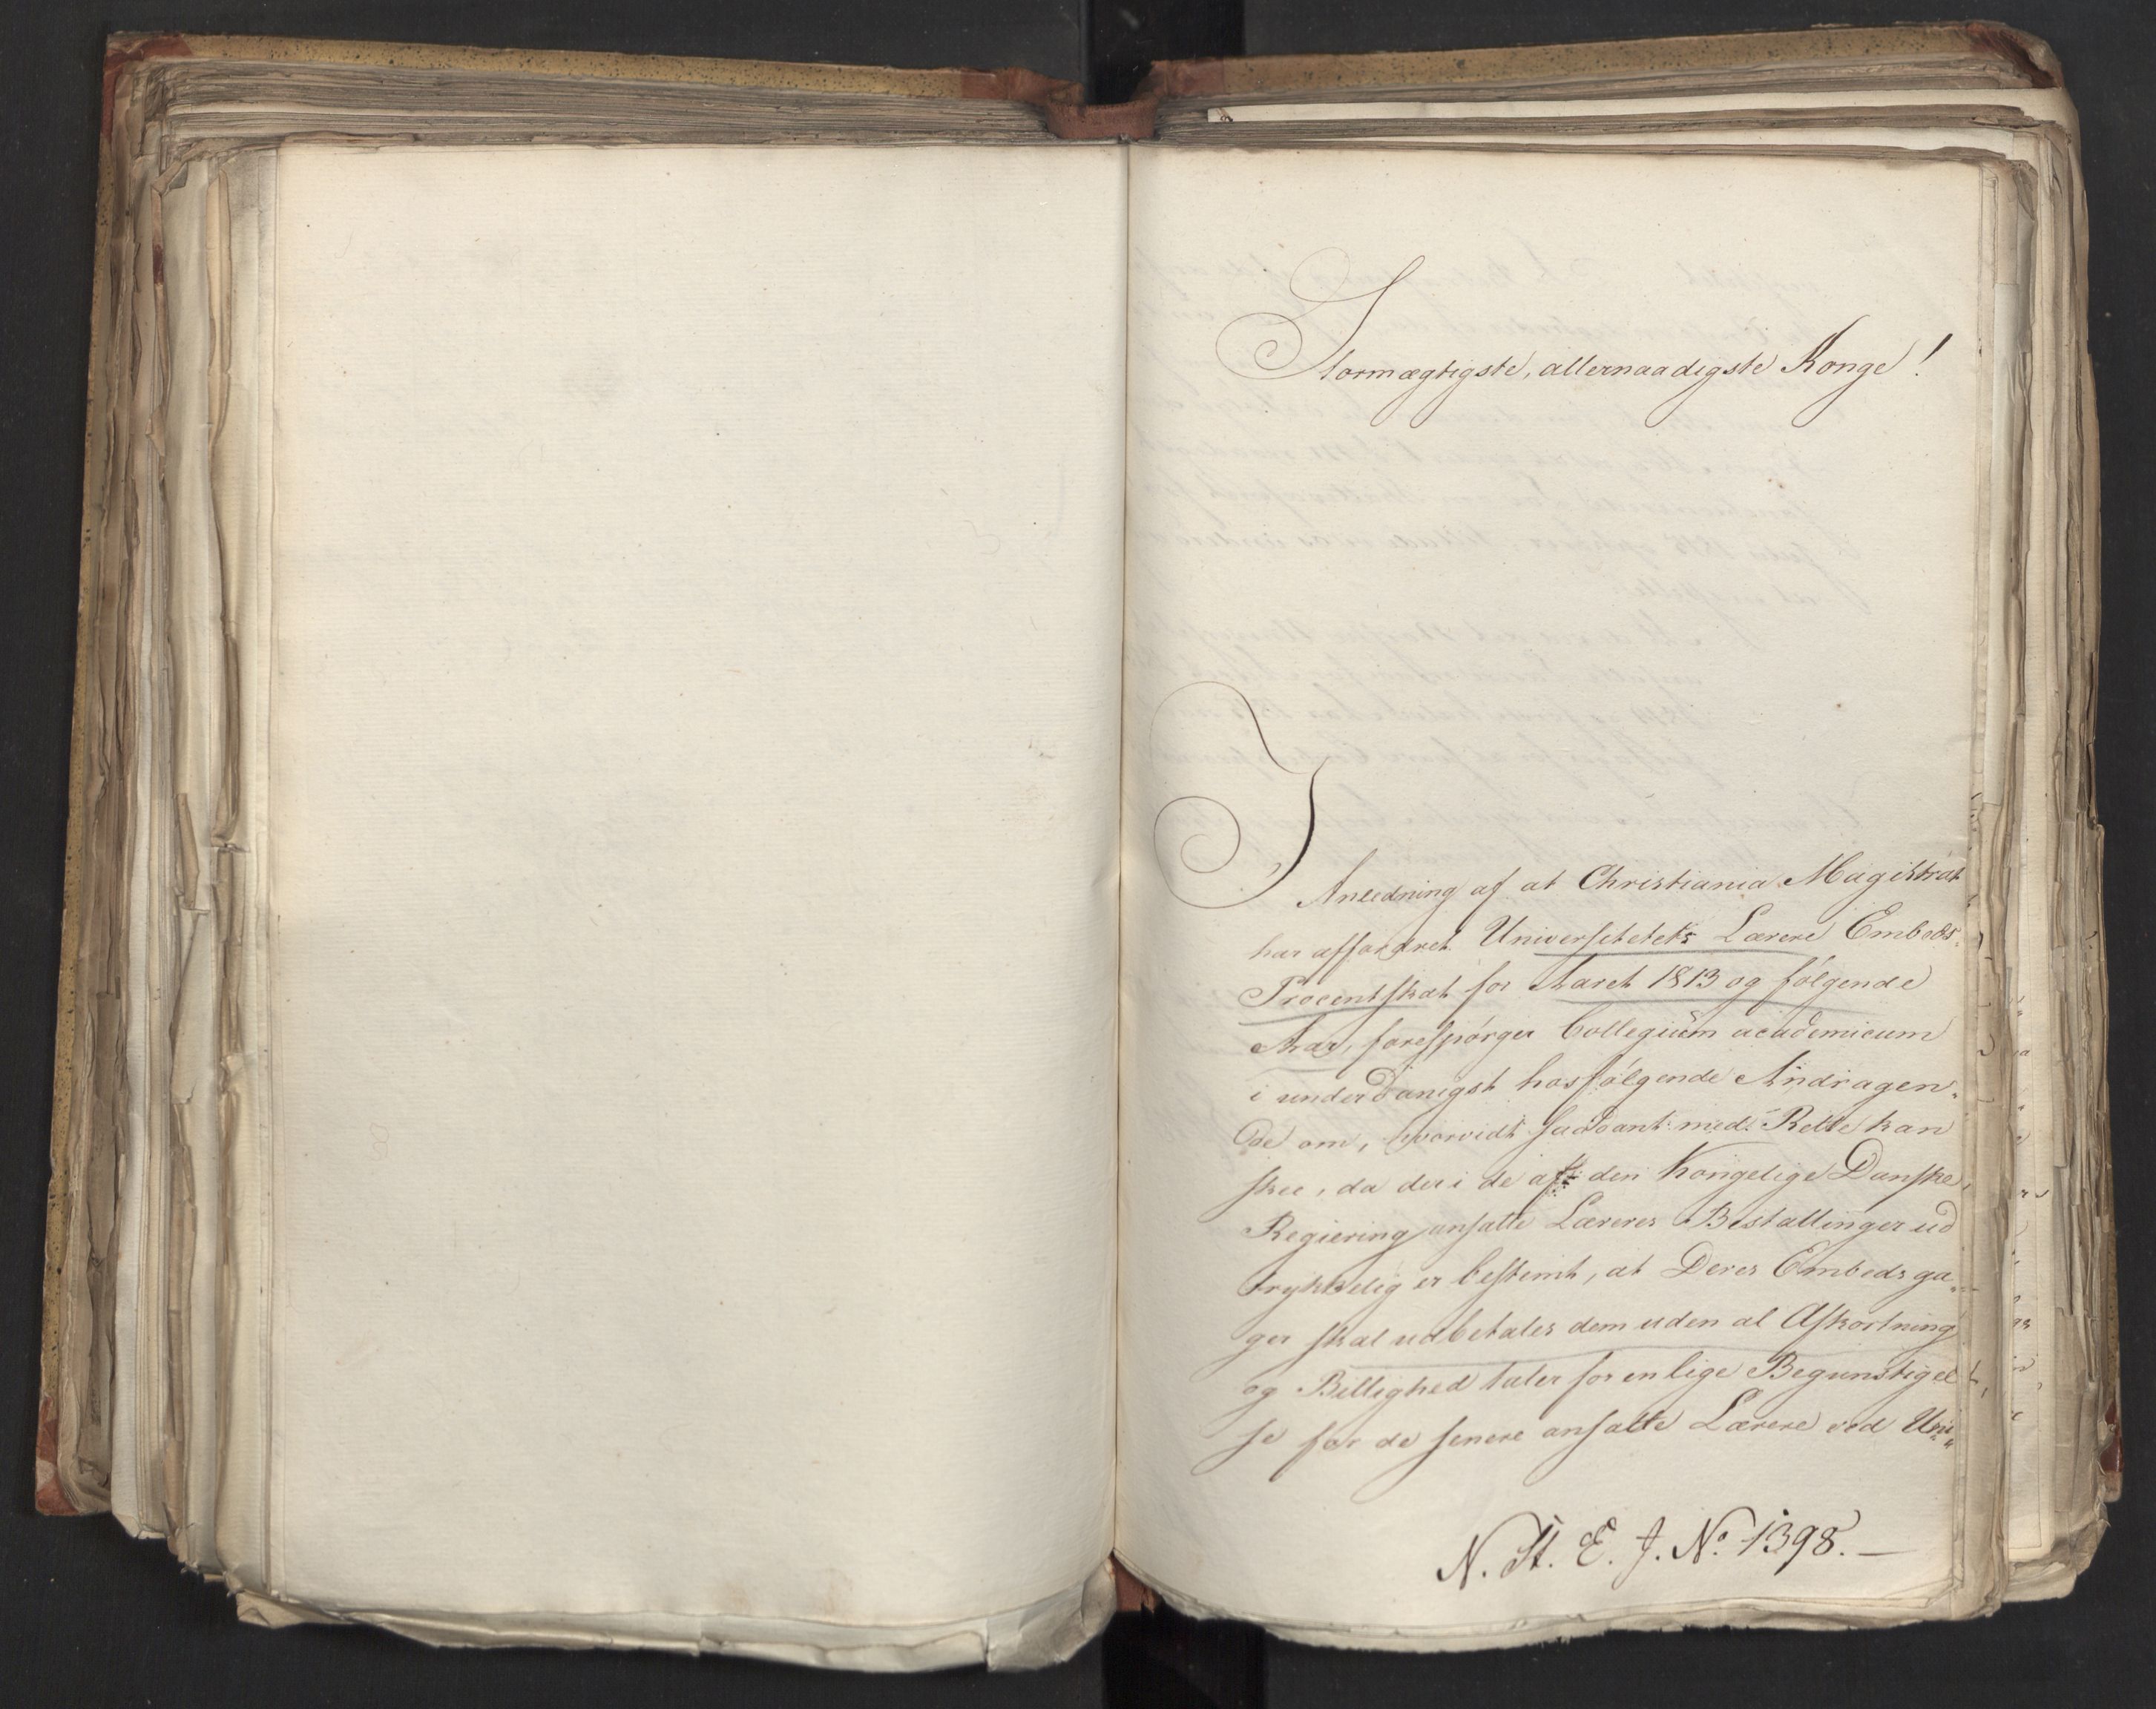 Stormægtigste, allernaadigste Konge!
I Anledning af at Christiania Magistrat
har affordret Universitetets Lærere Embeds-
Procentskat for Aaret 1813 og følgende
Aar, forespørger Collegium academicum
i underdanigst hosfølgende Andragen-
de om, hvorvidt saadant med Rette kan
skee, da der i de af den Kongelige Danske
Regiering ansatte Læreres Bestallinger ud
trykkelig er bestemt, at Deres Embedsga-
ger skal udbetales dem uden al Afkortning
og Billighed taler for en lige Begunstigel
se for de senere ansatte Lærere ved Uni-
N. St. E. J. No. 1398.—